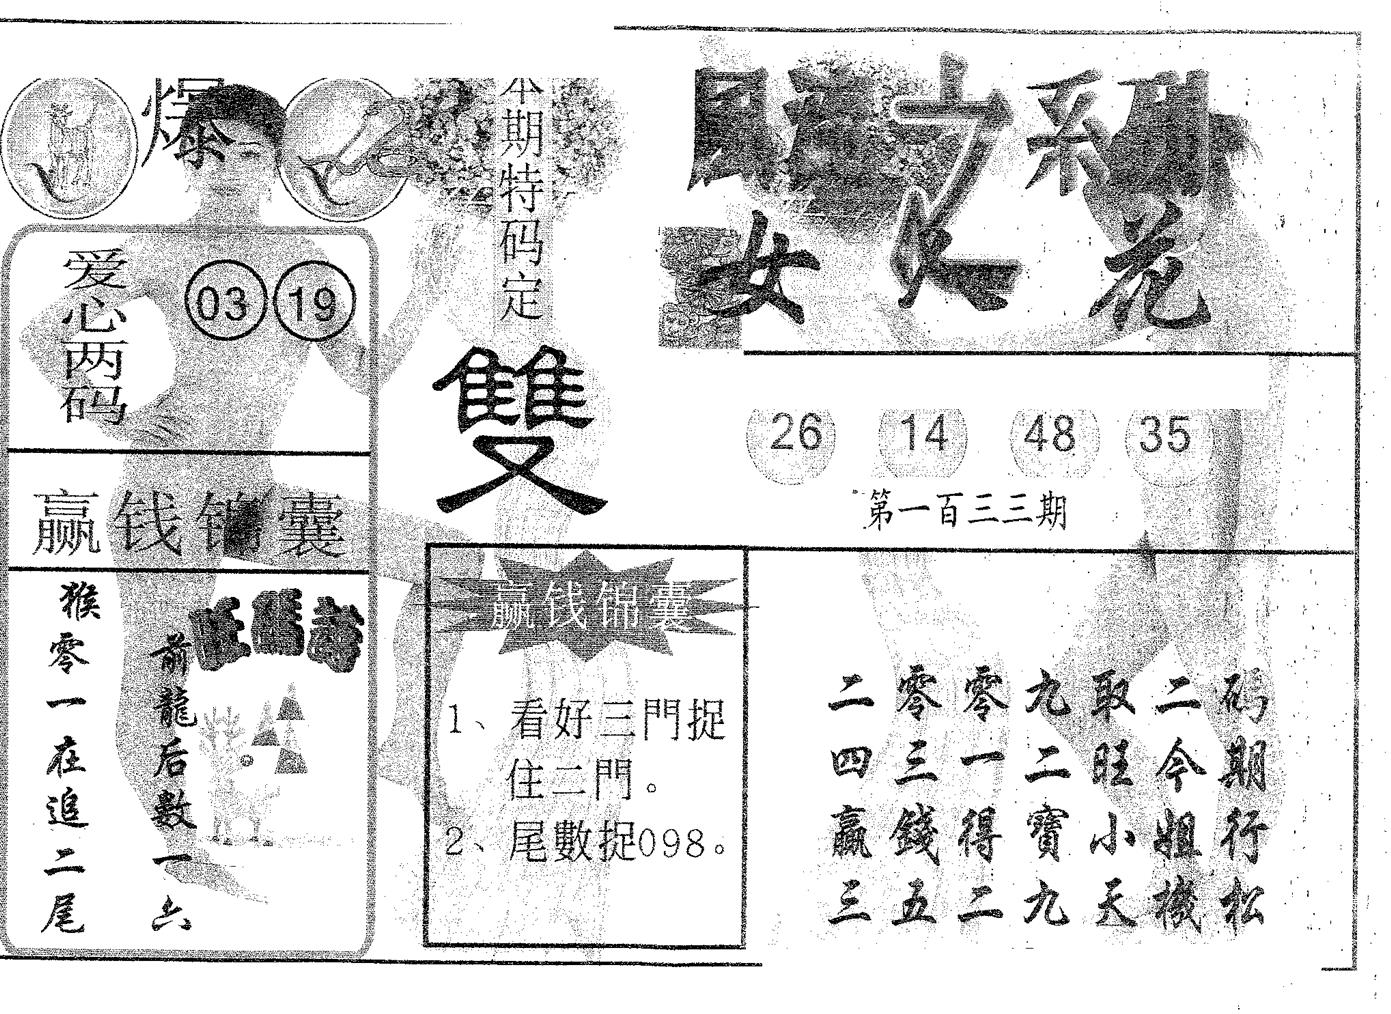 爆
本期特码定
雙
爱心两码
03 19
赢钱锦囊
猴零一在追二尾
前龍后數一六
旺碼詩
赢钱锦囊
1、看好三門捉
住二門。
2、尾數捉098。
之
女 花
26 14 48 35
第一百三三期
二零零九取二码
四三一二旺今期
贏錢得寶小姐行
三五二九天機松